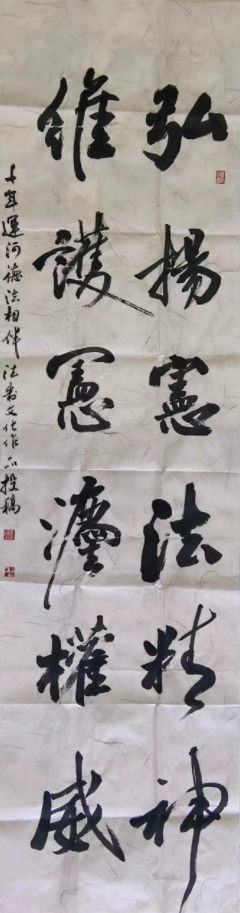 弘揚憲法精神
維護憲灋權威
十年運河德法相伴 法書文化作品投稿